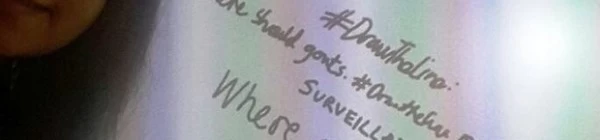 #DrawTheLine:
should govts. #DrawTheLine
SURVEILLA
Where